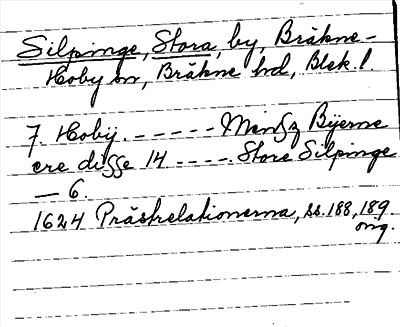 Silpinge, Stora, by, Bräkne-
Hoby sn, Bräkne hd, Blek. l.
J. Hoby. - - - - - - Menſz Byerne
ere diſſe 14 - - - - . Store Silpinge
— 6.
1624 Prästrelationerna, ss. 188, 189
orig.